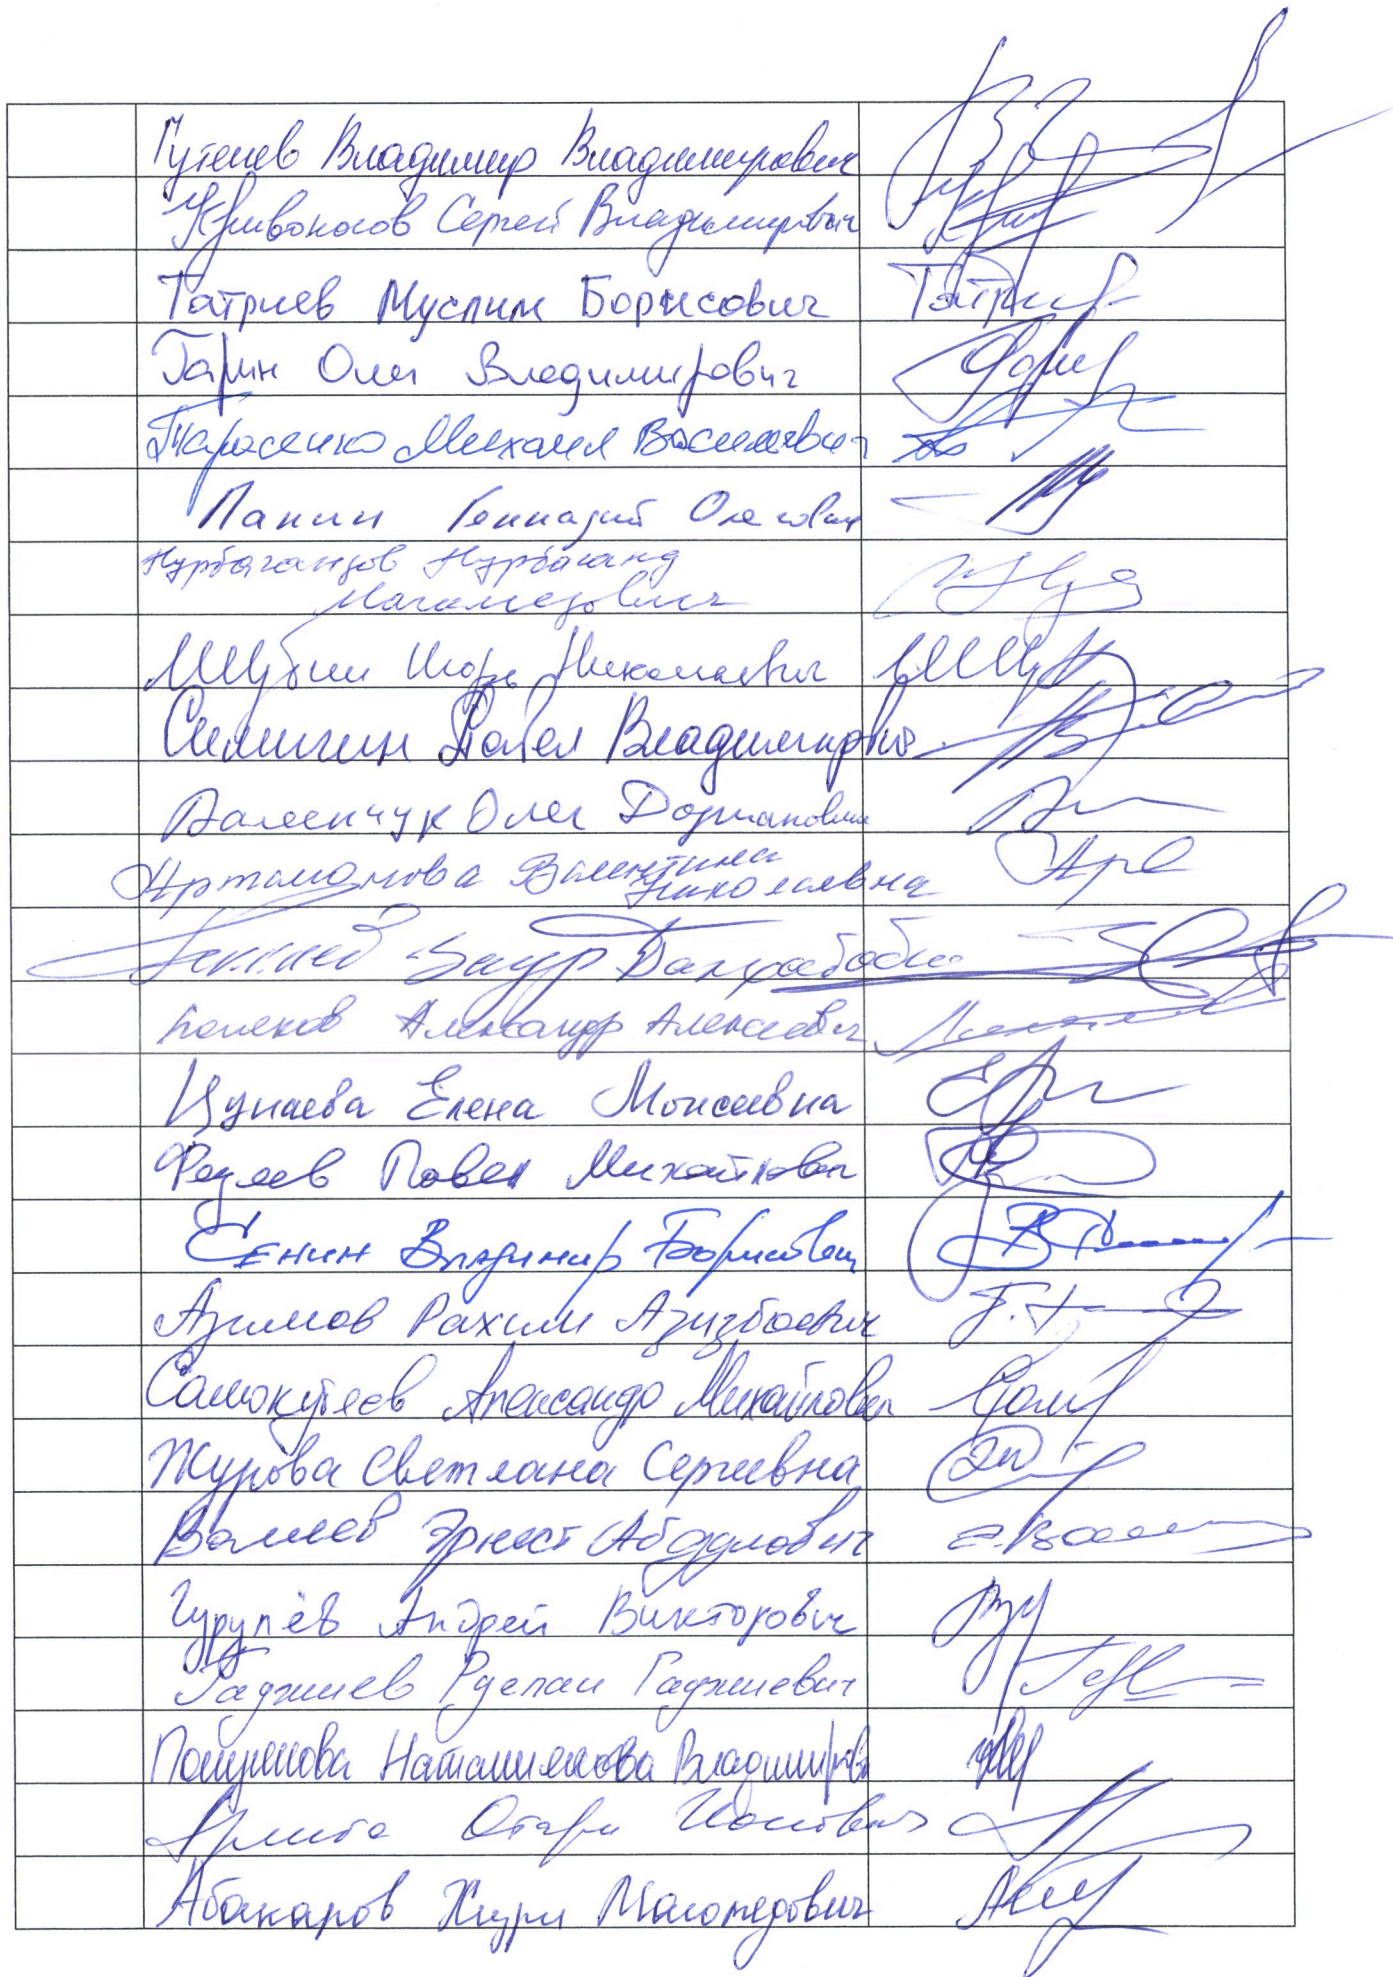 Гутенев Владимир Владимирович
Кривоносов Сергей Владимирович
Татриев Муслим Борисович Татри
Гарин Олег Владимирович
Тарасенко Михаил Васильевич
Панин Геннадий Олегович
Нурбагандов Нурбаганд
Магомедович
Шубин Игорь Николаевич
Симигин Павел Владимирович
Валенчук Олег Дорианович
Артамонова Валентина
Николаевна
Заур
Поляков Александр Алексеевич
Цунаева Елена Моисеевна
Федяев Павел Михайлович
Сенин Владимир Борисович
Азимов Рахим Азизбоевич
Самокутяев Александр Михайлович
Журова Светлана Сергеевна
Валеев Эрнест Абдулович
Гурулёв Андрей Викторович
Гаджиев Руслан Гаджиевич
Полуянова Наталия Владимировна
Аршба Отари Ионович
Абакаров Хизри Магомедович